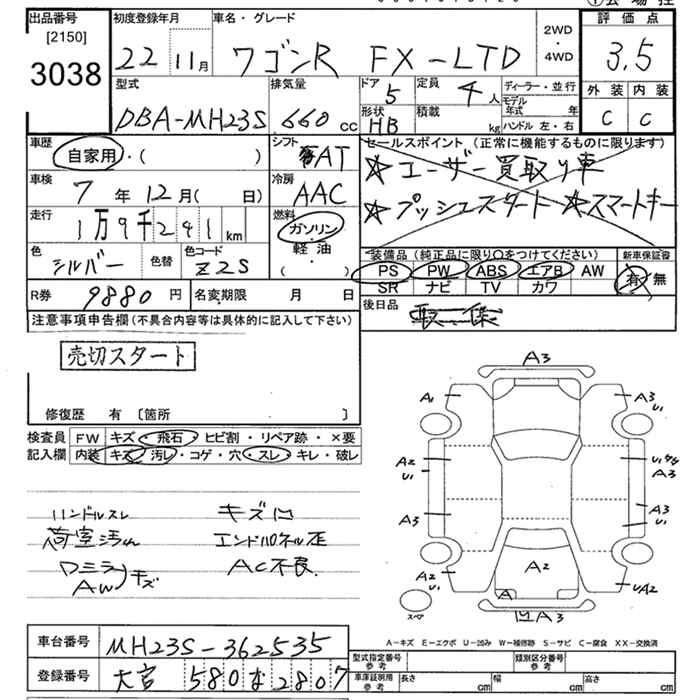 出品番号
[2150]
3038
初度登録年月
22 11月
車名・グレード
ワゴンR FX-LTD
2WD
・
4WD
評価点
3.5
外装 内装
C C
型式
DBA-MH23S
排気量
660 cc
ドア
5
定員
4人
形状
HB
積載
kg
ディーラー・並行
モデル年式 年
ハンドル 左・右
車歴
自家用・( )
シフト
AT
セールスポイント (正常に機能するものに限ります)
☆ユーザー買取り車
☆プッシュスタート ☆スマートキー
車検
7年12月( 日)
冷房
AAC
走行
1万9千241km
燃料
ガソリン
軽油
( )
色
シルバー
色替
色コード
Z2S
装備品 (純正品に限り○をつけてください)
PS PW ABS エアB AW
SR ナビ TV カワ
新車保証書
有・無
R券
9880円
名変期限 月 日
後日品
取・保
注意事項申告欄(不具合内容等は具体的に記入して下さい)
売切スタート
修復歴 有 〔箇所 〕
検査員 FW キズ・飛石・ヒビ割・リペア跡・×要
記入欄 内装 キズ・汚レ・コゲ・穴・スレ・キレ・破レ
ハンドルスレ キズ凹
荷室汚れ エンドパネル歪
Dミラー AC不良
AW キズ
A3
A1 A3
U1
A2
U1
A3
A3 A3
U1
A2
U1
A2
UA2
A
凹A3
スペア
A-キズ E-エクボ U-凹み W-補修跡 S-サビ C-腐食 XX-交換済
車台番号 MH23S-362535
登録番号 大宮 580 な 2807
型式指定番号
参考
類別区分番号
参考
車庫証明用
参考
長さ cm 幅 cm 高さ cm